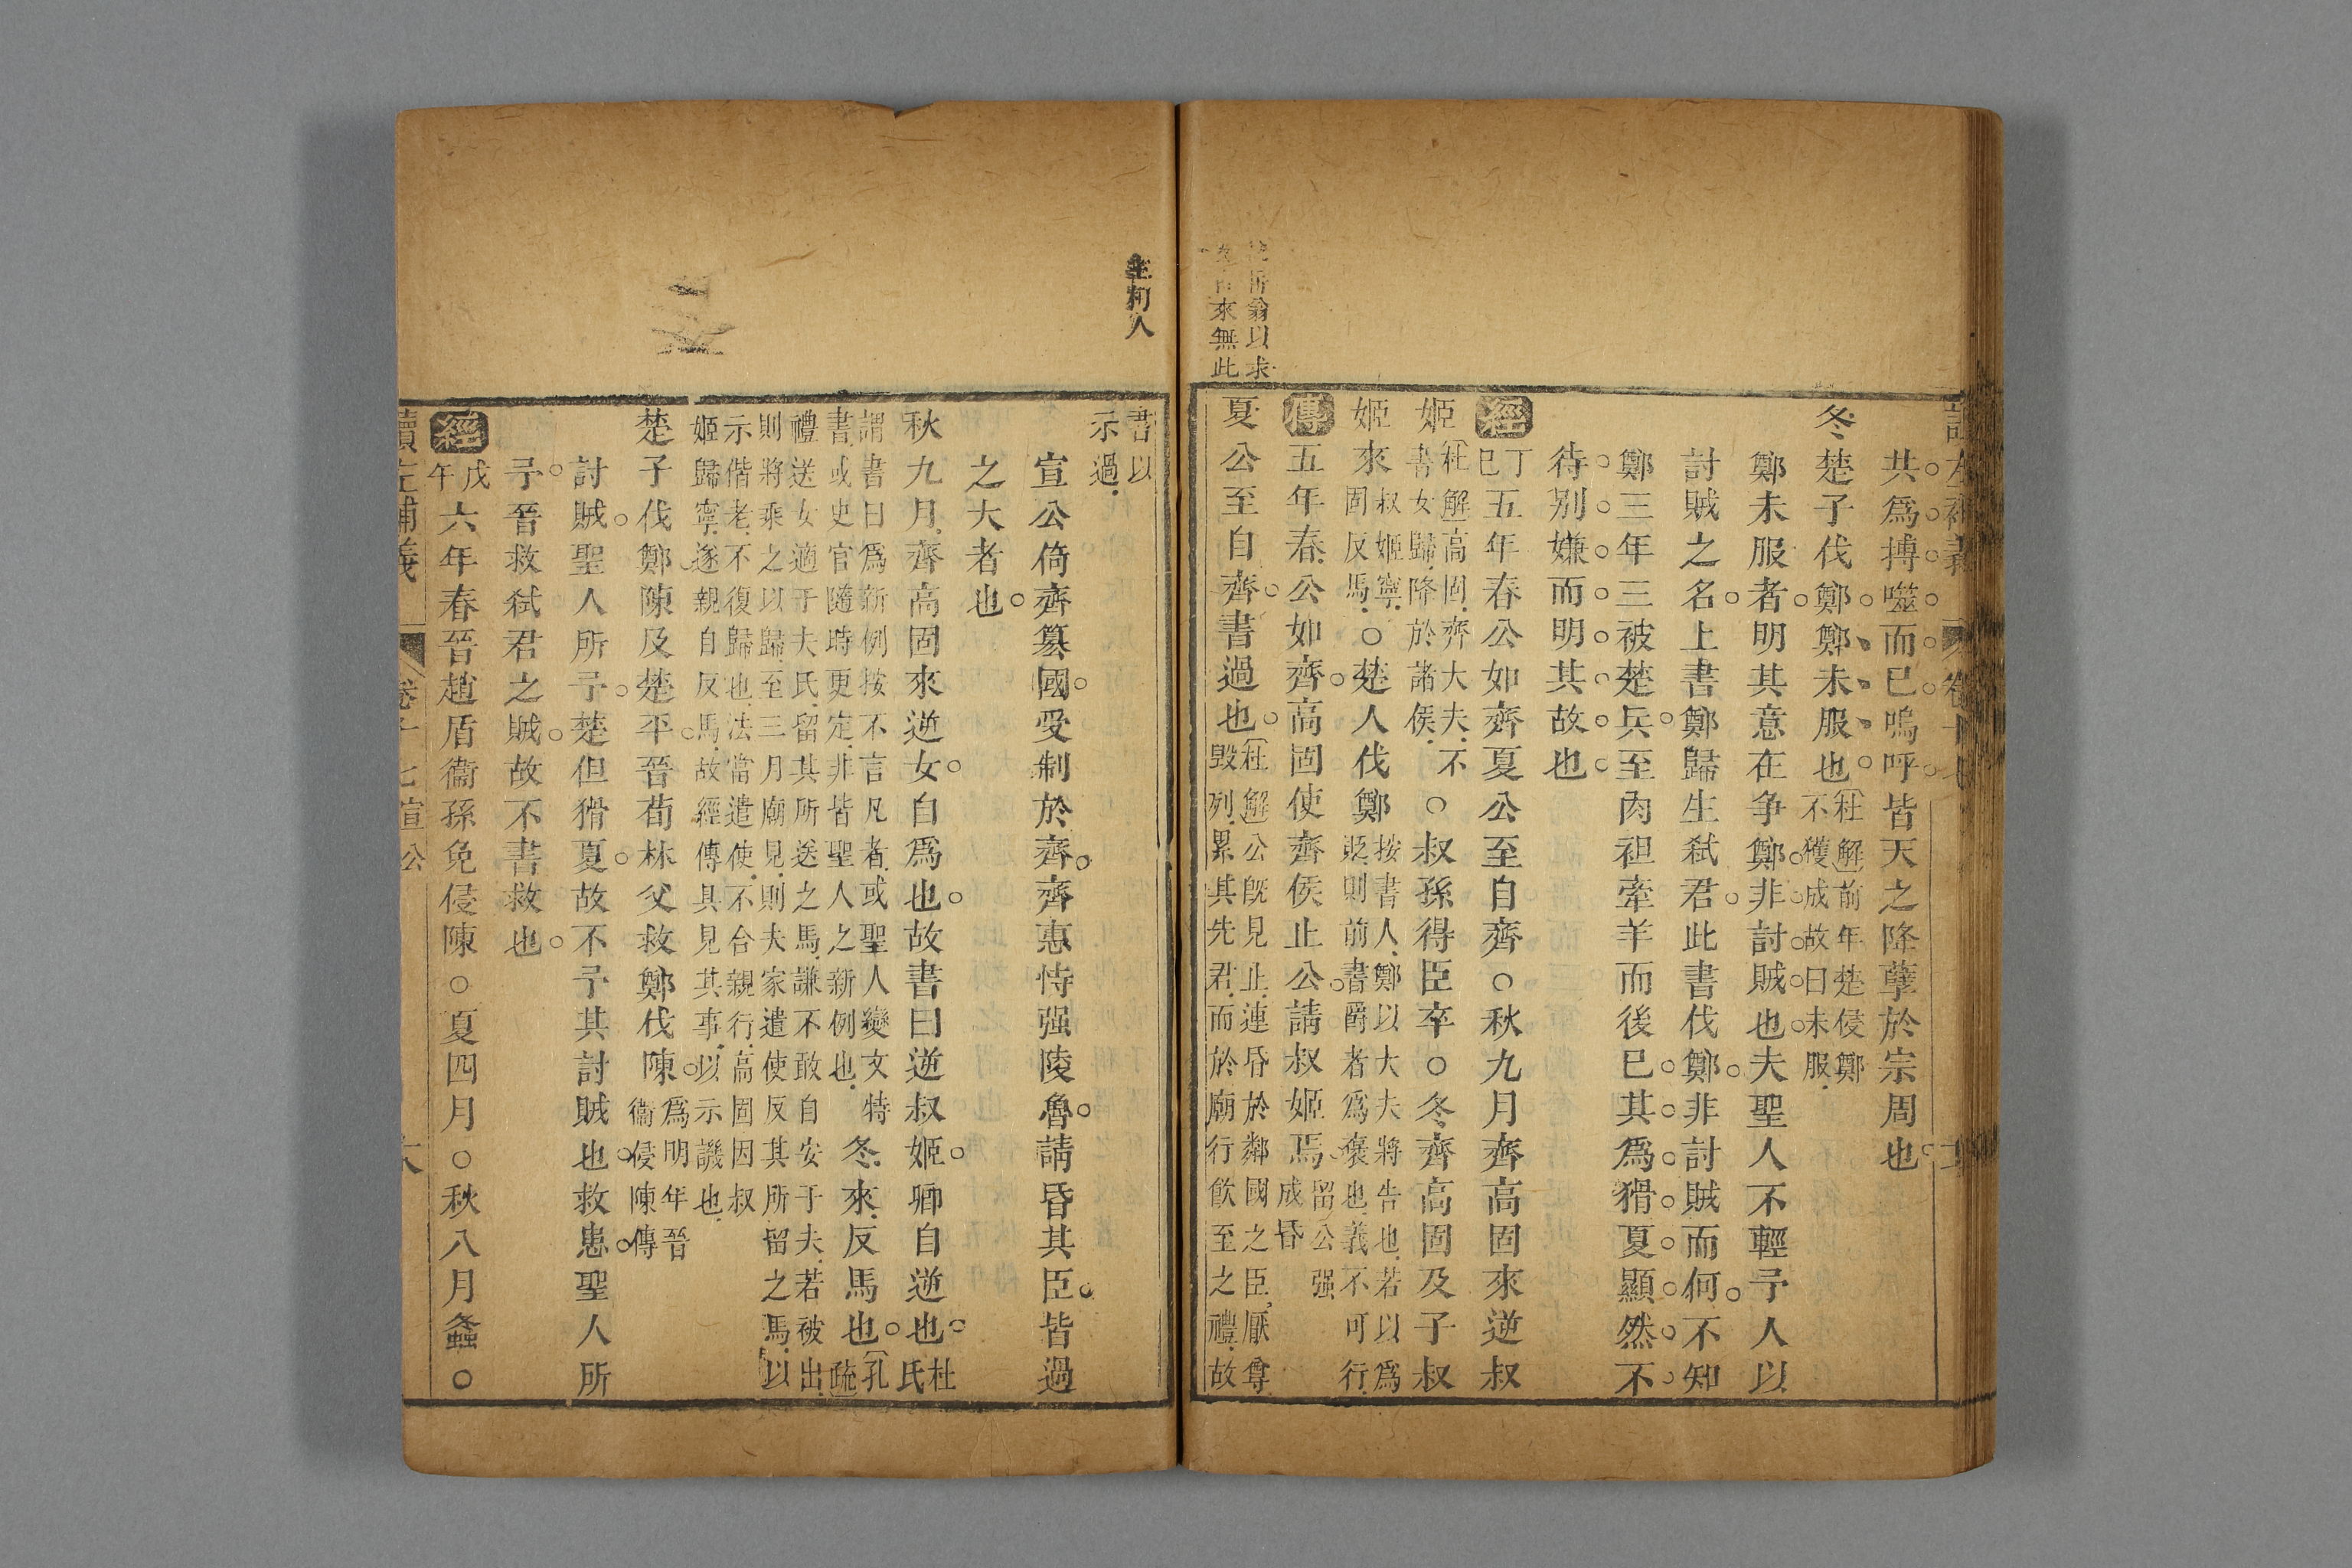 共爲搏噬而已嗚呼皆天之降孽於宗周也
冬楚子伐鄭鄭未服也
杜解前年楚侵鄭
不獲成故曰未服
鄭未服者明其意在争鄭非討賊也夫聖人不輕予人以
討賊之名上書鄭歸生弑君此書伐鄭非討賊而何不知
鄭三年三被楚兵至肉袒牽羊而後已其爲猾夏顯然不
待别嫌而明其故也
經
丁
巳
五年春公如齊夏公至自齊○秋九月齊高固來逆叔
姬
杜解高固齊大夫不
書女歸降於諸侯
○叔孫得臣卒○冬齊高固及子叔
姬來
叔姬寧
固反馬
○楚人伐鄭
按書人鄭以大夫將告也若以爲
貶則前書爵者爲褒也義不可行
傳
五年春公如齊高固使齊侯止公請叔姬焉
留公强
成昏
夏公至自齊書過也
杜解公既見止連昏於鄰國之臣厭尊
毀列累其先君而於廟行飲至之禮故
翁以求
來無此
書以
示過
宣公倚齊簒國受制於齊齊惠恃强陵魯請昏其臣皆過
之大者也
秋九月齊高固來逆女自爲也故書曰逆叔姬卿自逆也
杜
氏
謂書曰爲新例按不言凡者或聖人變文特
書或史官隨時更定非皆聖人之新例也
冬來反馬也
孔
疏
禮送女適于夫氏留其所送之馬謙不敢自安于夫若被出
則將乘之以歸至三月廟見則夫家遣使反其所留之馬以
示偕老不復歸也法當遣使不合親行高固因叔
姬歸寧遂親自反馬故經傳具見其事以示譏也
楚子伐鄭陳及楚平晉荀林父救鄭伐陳
爲明年晉
衞侵陳傳
討賊聖人所予楚但猾夏故不予其討賊也救患聖人所
予晉救弑君之賊故不書救也
經
戊
午
六年春晉趙盾衞孫免侵陳○夏四月○秋八月螽○
讀左補義
卷十七宣公